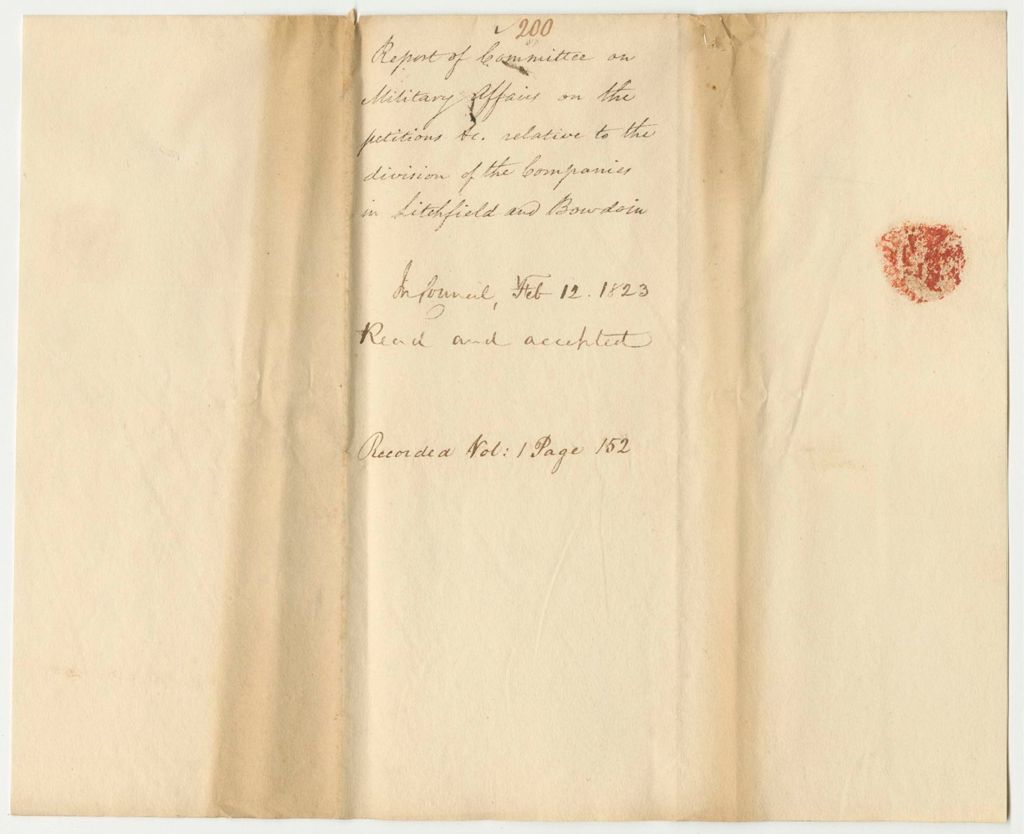 200
Report of Committee on
Military Affairs on the
petitions &c. relative to the
division of the Companies
in Litchfield and Bowdoin
In Council, Feb 12. 1823
Read and accepted
Recorded Vol: 1 Page 152